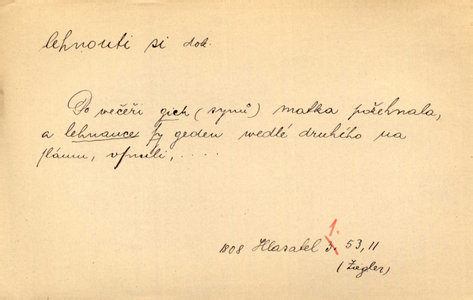 lehnouti si dok.
Po večeři gich (synů) matka požehnala,
a lehnauce sy geden wedlé druhého na
slámu, vsnuli, . . . .
1.
1808 Hlasatel 3. 53, 11
(Ziegler)